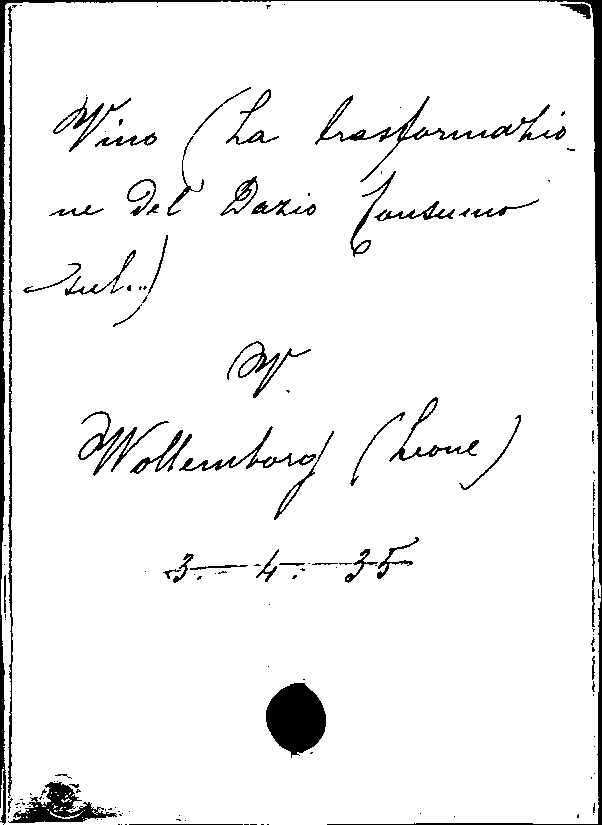 Vino (La trasformazio-
ne del Dazio Consumo
sul..)
V.
Wollemborg (Leone)
3. - 4. - 35